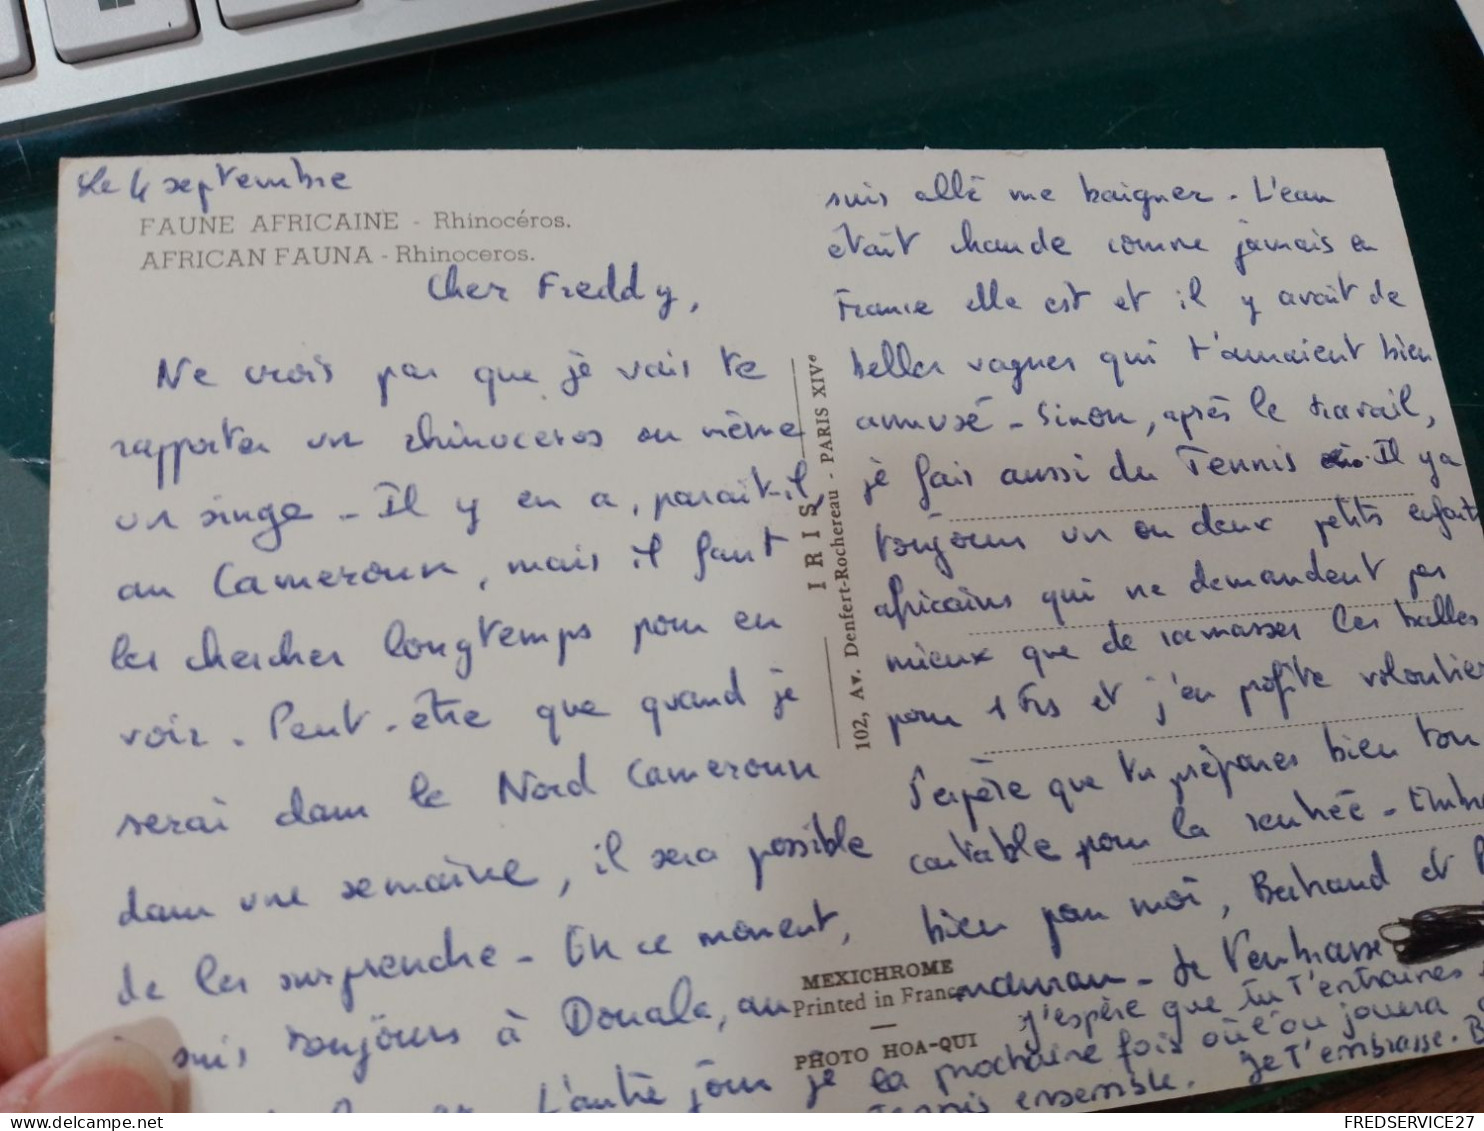 le 4 septembre
FAUNE AFRICAINE - Rhinocéros.
AFRICAN FAUNA - Rhinoceros.
Cher Freddy,
Ne crois pas que je vais te
rapporter un rhinoceros ou même
un singe - Il y en a, paraît-il
au Cameroun, mais il faut
les chercher longtemps pour en
voir. Peut-être que quand je
serai dans le Nord Cameroun
dans une semaine, il sera possible
de les surprendre - En ce moment,
suis toujours à Douala, au
L'autre jour je
suis allé me baigner - L'eau
était chaude comme jamais en
France elle est et il y avait de
belles vagues qui t'auraient bien
amusé - Sinon, après le travail,
je fais aussi du Tennis. Il y a
toujours un ou deux petits enfants
africains qui ne demandent pas
mieux que de ramasser les balles
pour 1 Frs et j'en profite volontie
J'espère que tu prépares bien ton
cartable pour la rentrée - Embra
bien pour moi, Bertrand et
maman - Je t'embrasse
j'espère que tu t'entraines
la prochaine fois où l'on jouera
ensemble. Je t'embrasse. B
IRIS
102, Av. Denfert-Rochereau - PARIS XIVe
MEXICHROME
Printed in France
PHOTO HOA-QUI
FREDSERVICE27